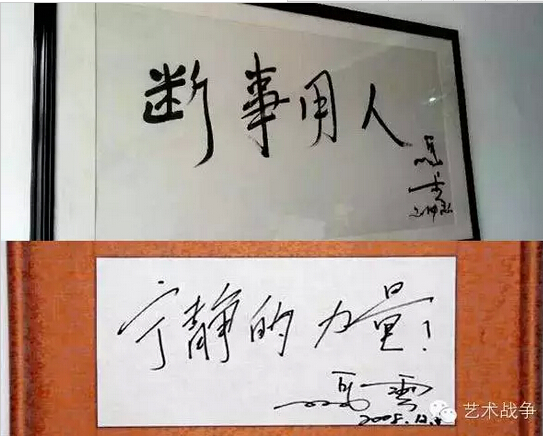 断事用人
馬云
宁静的力量！
馬雲
2008.12.
艺术战争